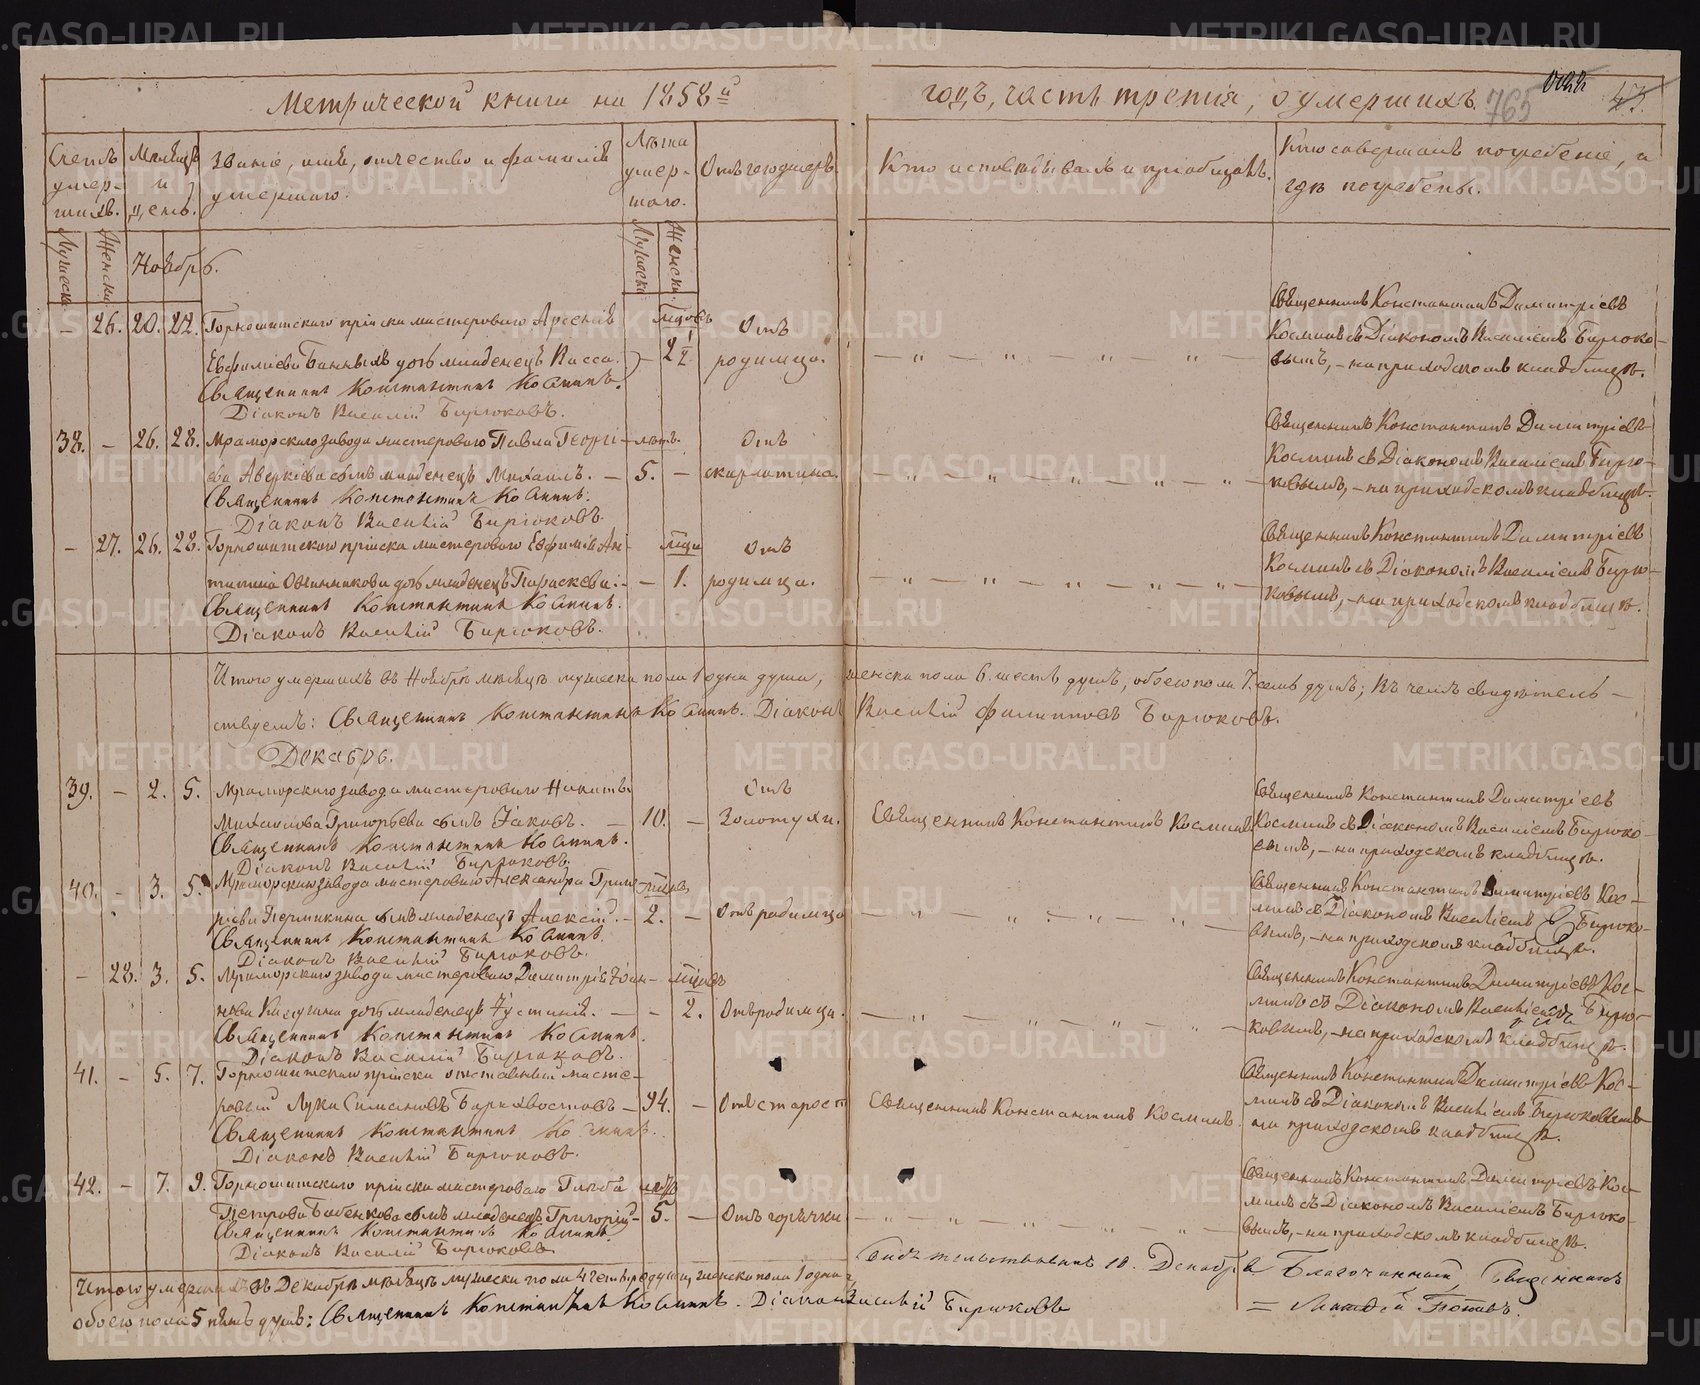 Метрической книги на 1858й годъ, часть третія, о умершихъ.
765
43.
Счетъ умер-шихъ.
Мѣсяцъ и день.
Званіе, имя, отчество и фамилія умершаго.
Лѣта умер-шаго.
Отъ чего умеръ
Кто исповѣдывалъ и пріобщалъ.
Кто совершалъ погребеніе, и гдѣ погребены.
Мужеска
Женска
Ноябрь.
Мужеска
Женска
– 26. 20. 22. Горнощитскаго пріиска мастероваго Арсенія Отъ
Евфиміева Банныхъ дочь младенецъ Васса. – 2½ родимца.
Священникъ Константинъ Косминъ.
Діаконъ Василій Бирюковъ.
Священникъ Константинъ Димитріевъ
Косминъ съ Діакономъ Василіемъ Бирюко-
вымъ, – на приходскомъ кладбищѣ.
38. – 26. 28. Мраморскаго завода мастероваго Павла Георгі- лѣтъ. Отъ
ева Аверкіева сынъ младенецъ Михаилъ. – 5. – скарлатина.
Священникъ Константинъ Косминъ.
Діаконъ Василій Бирюковъ.
Священникъ Константинъ Димитріевъ
Косминъ съ Діакономъ Василіемъ Бирю-
ковымъ, – на приходскомъ кладбищѣ.
– 27. 26. 28. Горнощитскаго пріиска мастероваго Евфимія Ан- Отъ
Овчинникова дочь младенецъ Параскева. – 1. родимца.
Священникъ Константинъ Косминъ.
Діаконъ Василій Бирюковъ.
Священникъ Константинъ Димитріевъ
Косминъ съ Діакономъ Василіемъ Бирю-
ковымъ, – на приходскомъ кладбищѣ.
Итого умершихъ въ Ноябрѣ мѣсяцѣ мужеска пола 1 одна душа, женска пола 6. шесть душъ, обоего пола 7. семь душъ; Въ чемъ свидѣтель-
ствуемъ: Священникъ Константинъ Косминъ. Діаконъ Василій Филипповъ Бирюковъ.
Декабрь.
39. – 2. 5. Мраморскаго завода мастероваго Никиты Отъ
Михайлова Григорьева сынъ Іаковъ. – 10. – Золотухи. Священникъ Константинъ Косминъ.
Священникъ Константинъ Косминъ.
Діаконъ Василій Бирюковъ.
Священникъ Константинъ Димитріевъ
Косминъ съ Діакономъ Василіемъ Бирюко-
вымъ, – на приходскомъ кладбищѣ.
40. – 3. 5. Мраморскаго завода мастероваго Александра Григо-
рьева Пермикина сынъ младенецъ Алексій. – 2. – Отъ родимца
Священникъ Константинъ Косминъ.
Діаконъ Василій Бирюковъ.
Священникъ Константинъ Димитріевъ Кос-
минъ съ Діакономъ Василіемъ Бирюко-
вымъ, – на приходскомъ кладбищѣ.
– 28. 3. 5. Мраморскаго завода мастероваго Димитрія Іоан-
нова дочь младенецъ Іустинія. – – 2. Отъ родимца.
Священникъ Константинъ Косминъ.
Діаконъ Василій Бирюковъ.
Священникъ Константинъ Димитріевъ Кос-
минъ съ Діакономъ Василіемъ Бирю-
ковымъ, – на приходскомъ кладбищѣ.
41. – 5. 7. Горнощитскаго пріиска отставный масте-
ровый Лука Симановъ – 94. – Отъ старости Священникъ Константинъ Косминъ.
Священникъ Константинъ Косминъ.
Діаконъ Василій Бирюковъ.
Священникъ Константинъ Димитріевъ Кос-
минъ съ Діакономъ Василіемъ Бирюковымъ
на приходскомъ кладбищѣ.
42. – 7. 9. Горнощитскаго пріиска мастероваго Глѣба лѣтъ
Петрова Бабенкова сынъ младенецъ Григорій – 5. – Отъ горячки
Священникъ Константинъ Косминъ.
Діаконъ Василій Бирюковъ.
Священникъ Константинъ Димитріевъ Кос-
минъ съ Діакономъ Василіемъ Бирюко-
вымъ, – на приходскомъ кладбищѣ.
Итого умершихъ въ Декабрѣ мѣсяцѣ мужеска пола 4 четыре души, женска пола 1 одна,
обоего пола 5 пять душъ: Священникъ Константинъ Косминъ. Діаконъ Василій Бирюковъ
Свидѣтельствовалъ 10. Декабря Благочинный, Священникъ
METRIKI.GASO-URAL.RU